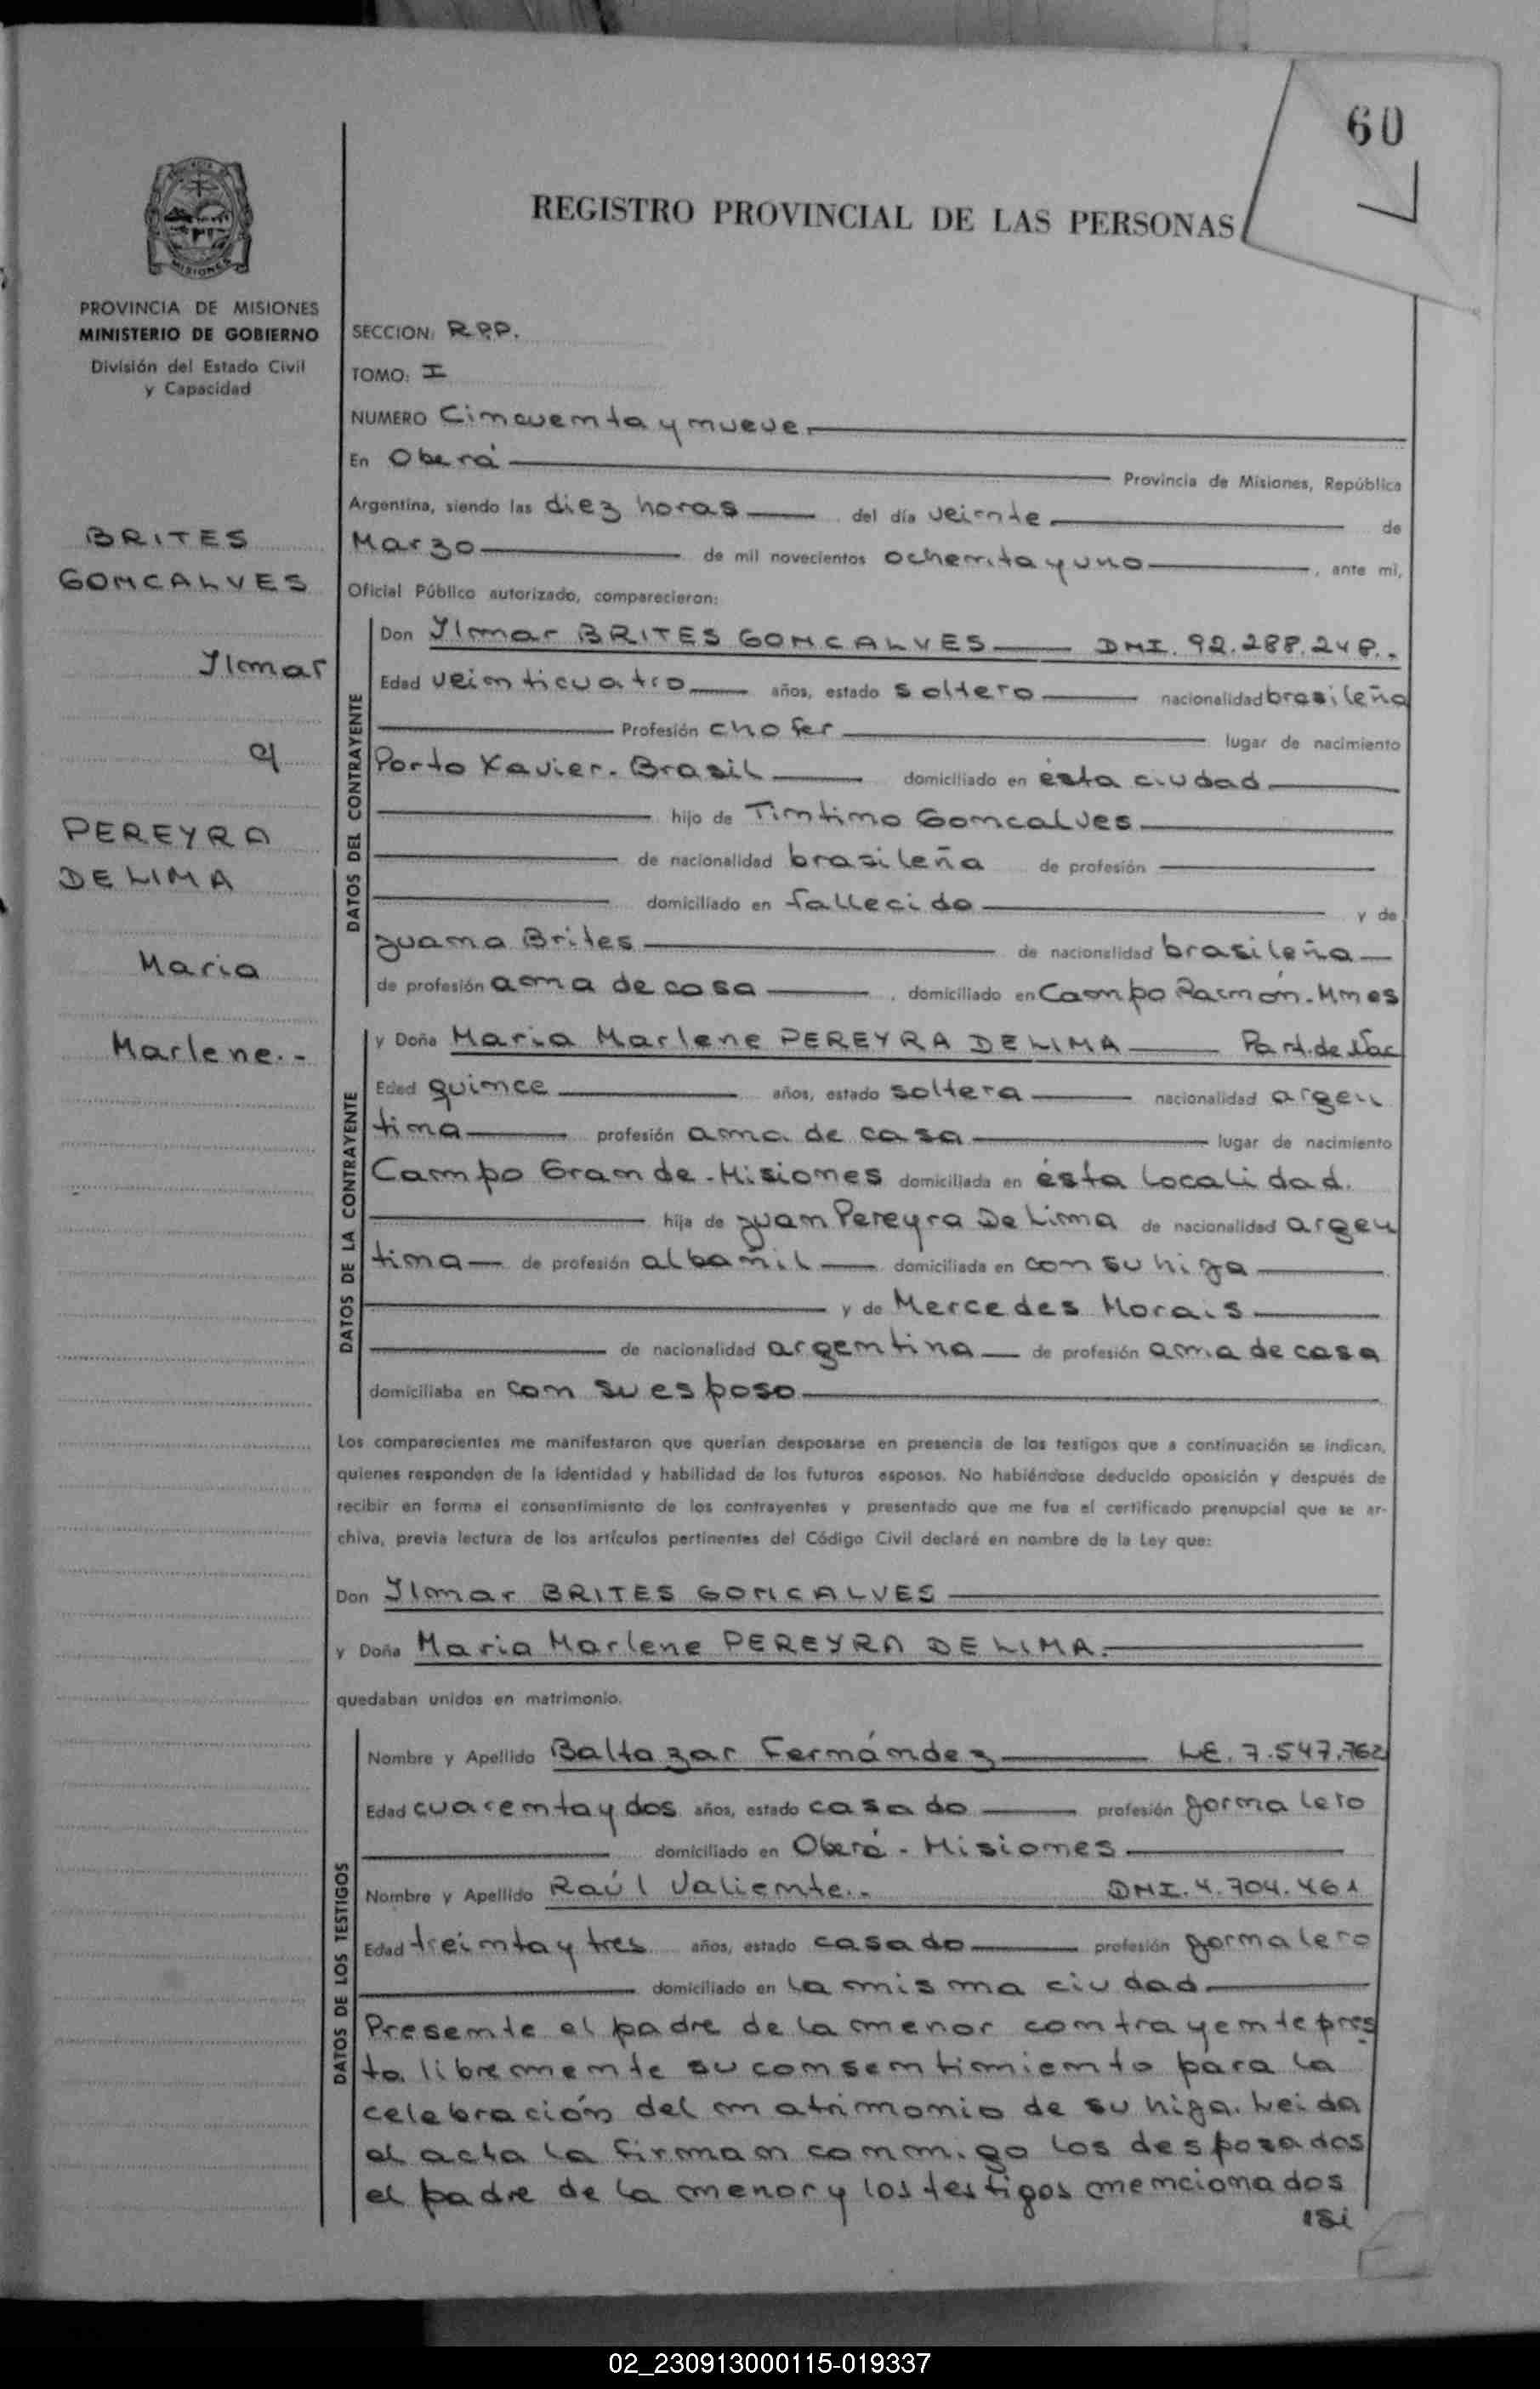 60
REGISTRO PROVINCIAL DE LAS PERSONAS
MISIONES
PROVINCIA DE MISIONES
MINISTERIO DE GOBIERNO
División del Estado Civil
y Capacidad
BRITES
GONCALVES
Ilmar
c/
PEREYRA
DE LIMA
Maria
Marlene.-
SECCION: R.P.P.
TOMO: I
NUMERO Cincuenta y nueve.
En Oberá Provincia de Misiones, República
Argentina, siendo las diez horas del día veinte de
Marzo de mil novecientos ochenta y uno, ante mi,
Oficial Público autorizado, comparecieron:
DATOS DEL CONTRAYENTE
Don Ilmar BRITES GONCALVES DNI. 92.288.248.-
Edad veinticuatro años, estado soltero nacionalidad brasileña
Profesión chofer lugar de nacimiento
Porto Xavier. Brasil domiciliado en ésta ciudad
hijo de Timtimo Goncalves
de nacionalidad brasileña de profesión
domiciliado en fallecido y de
Juana Brites de nacionalidad brasileña
de profesión ama de casa, domiciliado en Campo Ramón. Mnes
DATOS DE LA CONTRAYENTE
y Doña Maria Marlene PEREYRA DE LIMA Part. de Nac
Edad quince años, estado soltera nacionalidad argen
tina profesión ama de casa lugar de nacimiento
Campo Grande - Misiones domiciliada en ésta localidad.
hija de Juan Pereyra De Lima de nacionalidad argen
tina de profesión albañil domiciliada en con su hija
y de Mercedes Morais
de nacionalidad argentina de profesión ama de casa
domiciliaba en con su esposo
Los comparecientes me manifestaron que querían desposarse en presencia de los testigos que a continuación se indican,
quienes responden de la identidad y habilidad de los futuros esposos. No habiéndose deducido oposición y después de
recibir en forma el consentimiento de los contrayentes y presentado que me fue el certificado prenupcial que se ar-
chiva, previa lectura de los artículos pertinentes del Código Civil declaré en nombre de la Ley que:
Don Ilmar BRITES GONCALVES
y Doña Maria Marlene PEREYRA DE LIMA.
quedaban unidos en matrimonio.
DATOS DE LOS TESTIGOS
Nombre y Apellido Baltazar Fernández LE. 7.547.762
Edad cuarenta y dos años, estado casado profesión jornalero
domiciliado en Oberá - Misiones
Nombre y Apellido Raúl Valiente.- DNI. 4.704.461
Edad treinta y tres años, estado casado profesión jornalero
domiciliado en la misma ciudad
Presente el padre de la menor contrayente pres
ta libremente su consentimiento para la
celebración del matrimonio de su hija. Leida
el acta la firman conmigo los desposados
el padre de la menor y los testigos mencionados
02_230913000115-019337